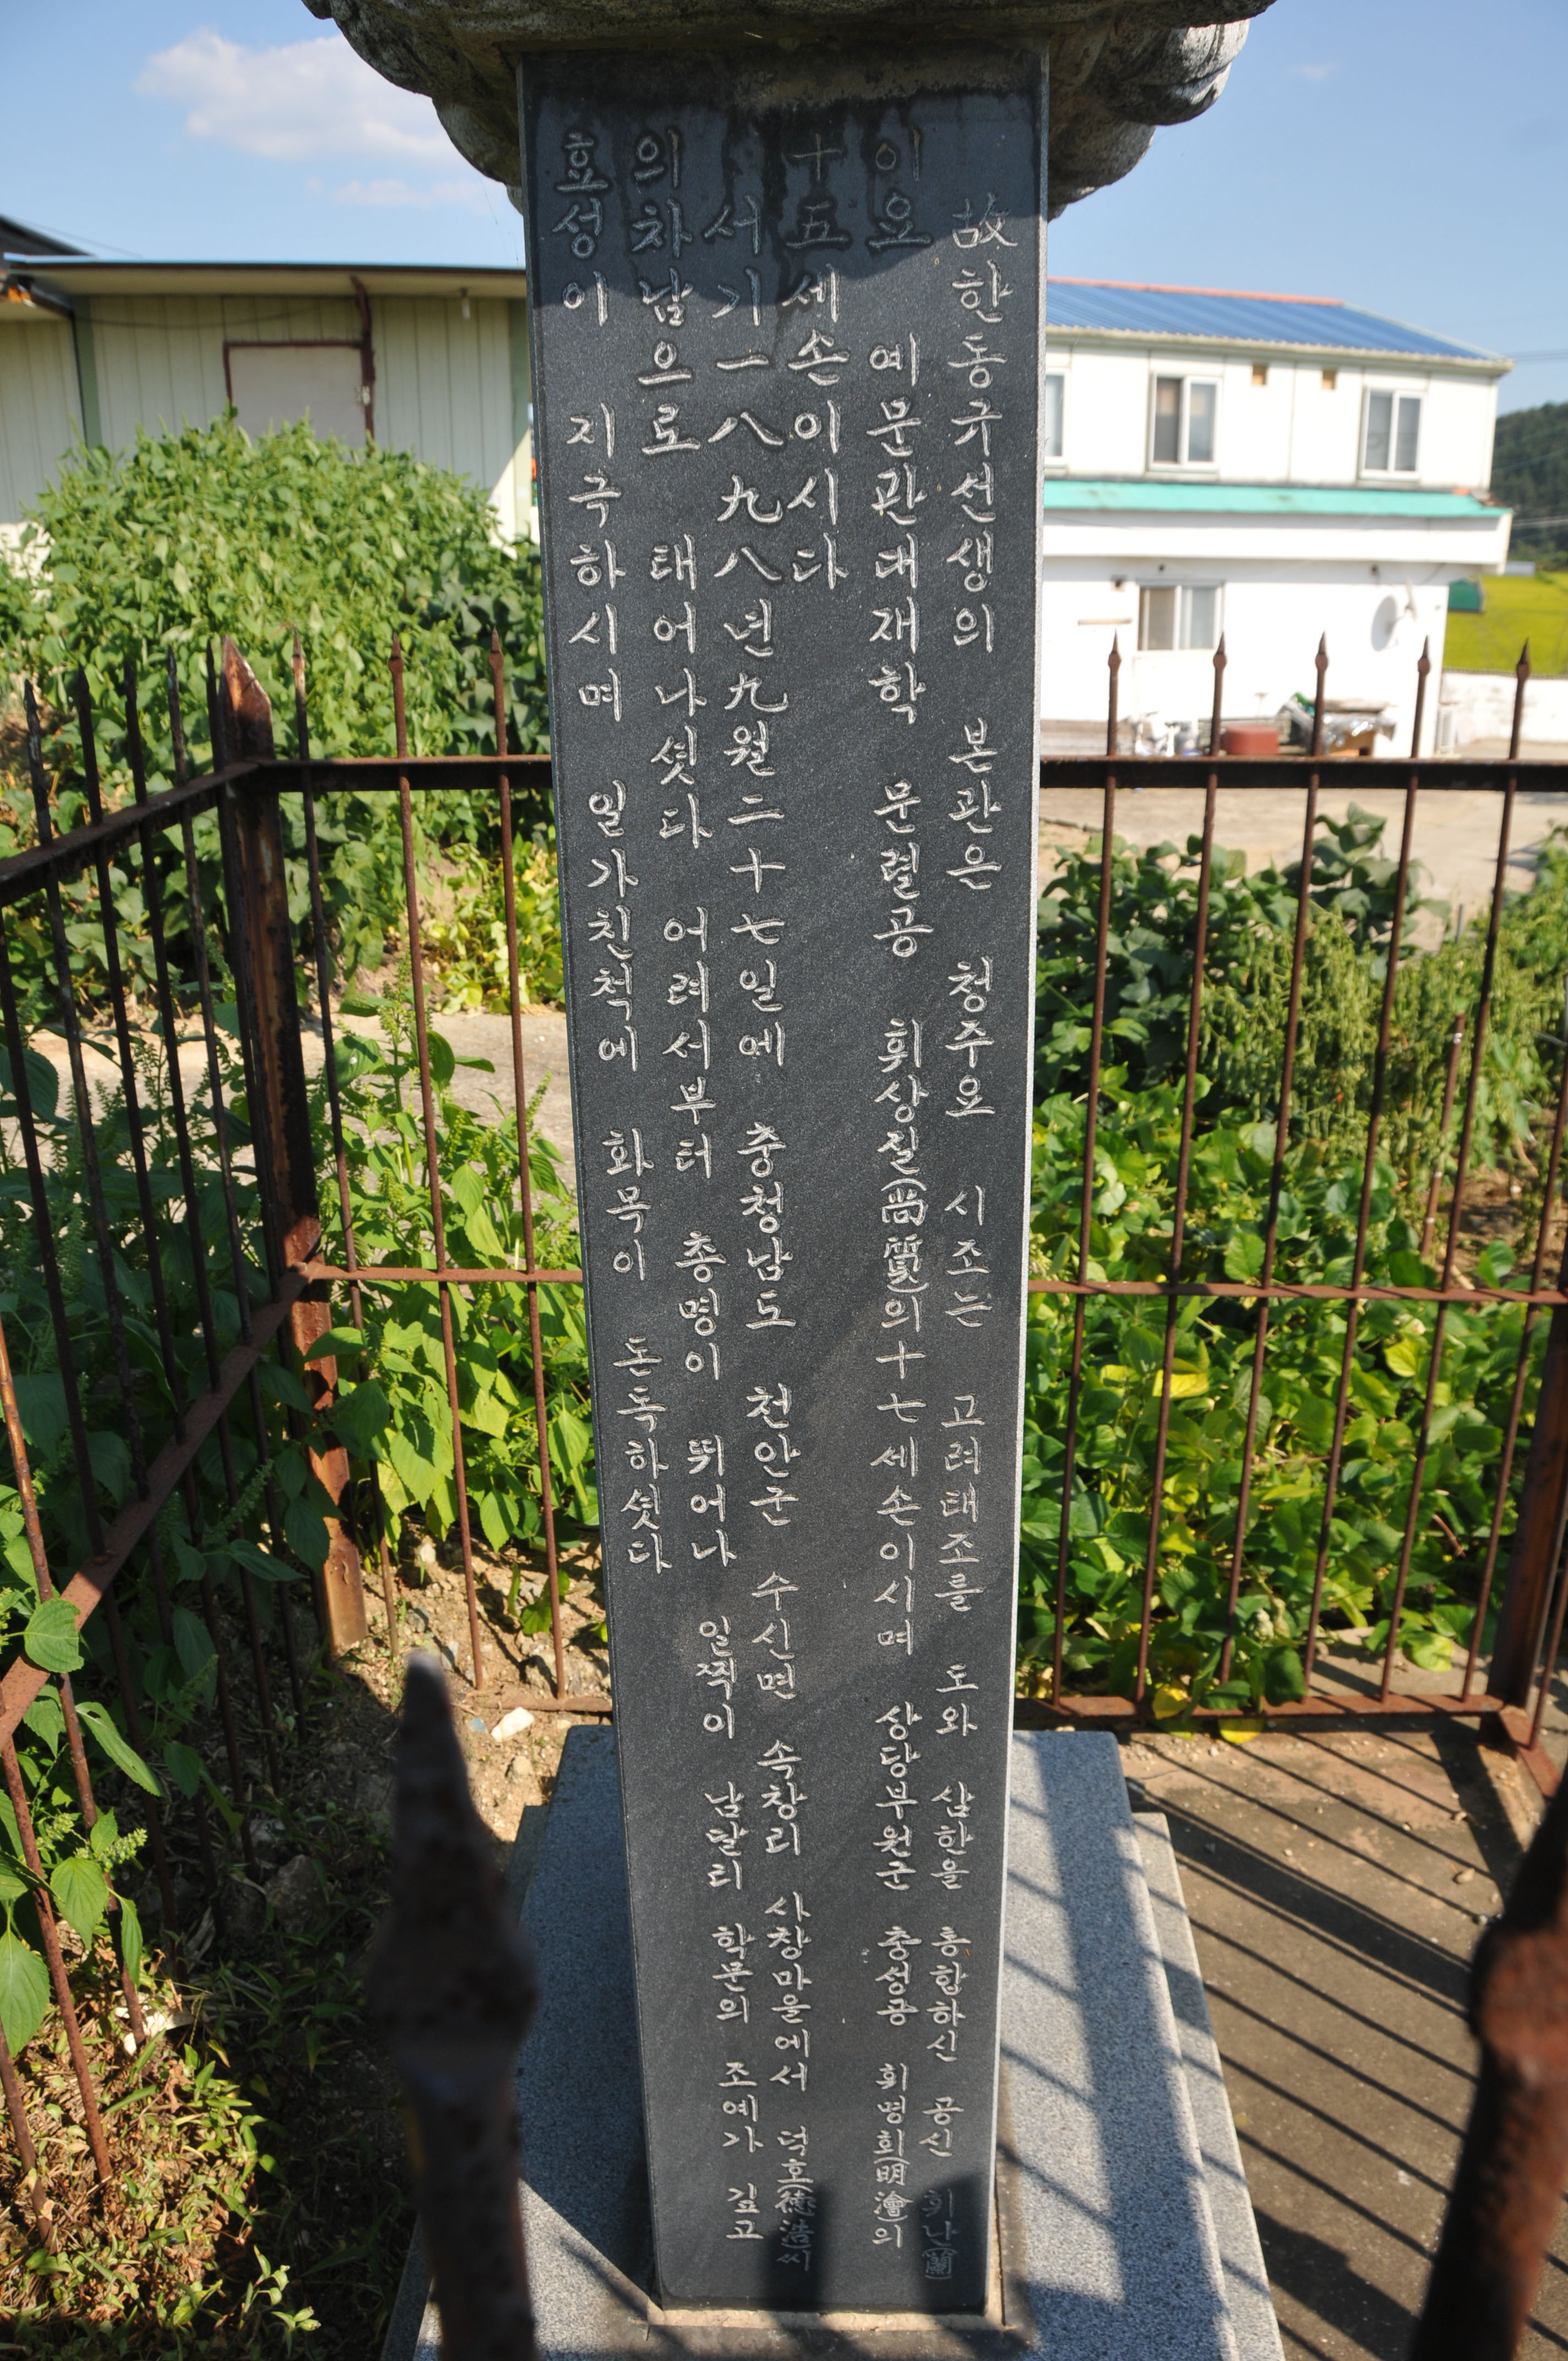 故한동규선생의 본관은 청주요 시조는 고려태조를 도와 삼한을 통합하신 공신 휘난(蘭)
이요 예문관대재학 문렬공 휘상질(尙質)의 十七세손이시며 상당부원군 충성공 휘명회(明澮)의
十五세손이시다
서기一八九八년九월二十七일에 충청남도 천안군 수신면 속창리 사창마을에서 덕호(德浩)씨
의차남으로 태어나셧다 어려서부터 총명이 뛰어나 일찍이 남달리 학문의 조예가 깊고
효성이 지극하시며 일가친척에 화목이 돈독하셧다